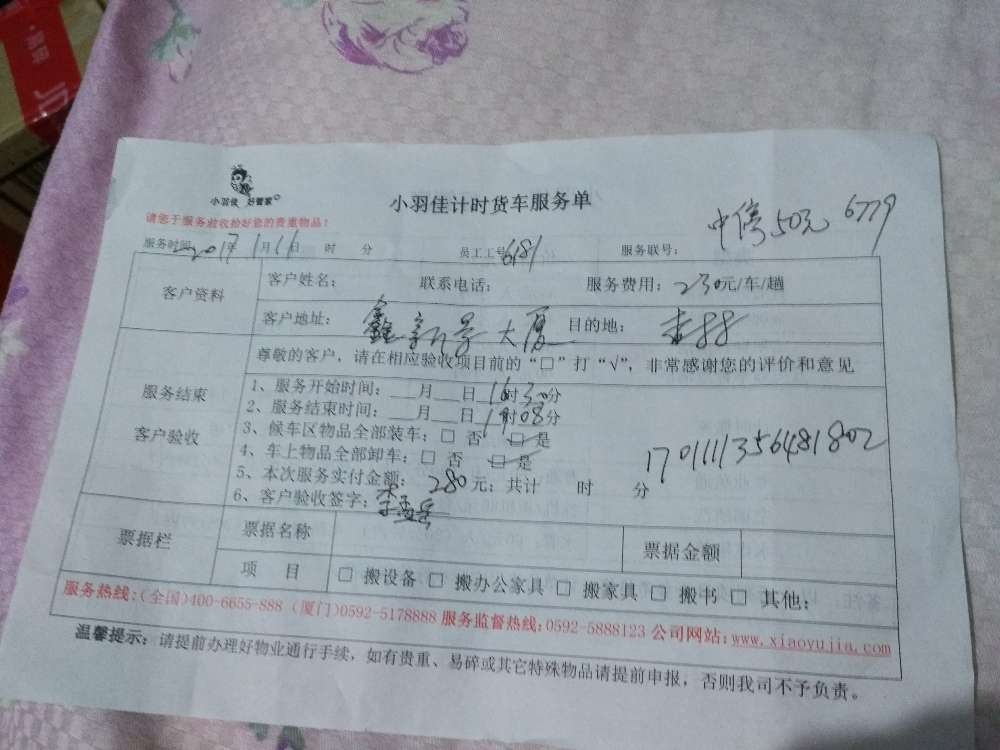 小羽佳 好管家
小羽佳计时货车服务单
请您于服务验收拾好您的贵重物品!
中停50元 6779
服务时间: 2017年1月11日 时 分 员工工号: 6181 服务联号:
客户资料 客户姓名: 联系电话: 服务费用: 230元/车/趟
客户地址: 鑫新景大厦 目的地:
尊敬的客户，请在相应验收项目前的“□”打“√”，非常感谢您的评价和意见
服务结束
客户验收
1、服务开始时间: __月__日16时30分
2、服务结束时间: __月__日19时08分
3、候车区物品全部装车: □ 否 □ 是
4、车上物品全部卸车: □ 否 □ 是
1701111356481802
5、本次服务实付金额: 280元; 共计 时 分
6、客户验收签字:
票据栏 票据名称 票据金额
项 目 □ 搬设备 □ 搬办公家具 □ 搬家具 □ 搬书 □ 其他:
服务热线:(全国)400-6655-888 (厦门)0592-5178888 服务监督热线:0592-5888123 公司网站:www.xiaoyujia.com
温馨提示: 请提前办理好物业通行手续，如有贵重、易碎或其它特殊物品请提前申报，否则我司不予负责。